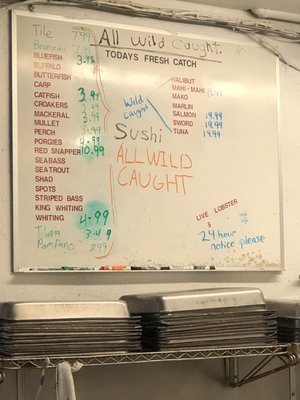 All Wild Caught.
TODAYS FRESH CATCH
Tile 7.99
Bronzini 7.99
BLUEFISH 3.99
BUFFALO
BUTTERFISH
CARP
CATFISH 3.99
CROAKERS 3.99
MACKERAL 3.99
MULLET
PERCH 3.99
PORGIES 4.99
RED SNAPPER 10.99
SEABASS
SEATROUT
SHAD
SPOTS
STRIPED BASS
KING WHITING
WHITING 4.99
Tilapia 3.49
Pompano 8.99
Wild
caught
Sushi
ALL WILD
CAUGHT
HALIBUT
MAHI-MAHI
MAKO
MARLIN
SALMON 19.99
SWORD 19.99
TUNA 19.99
LIVE LOBSTER
$
and
up
24 hour
notice please